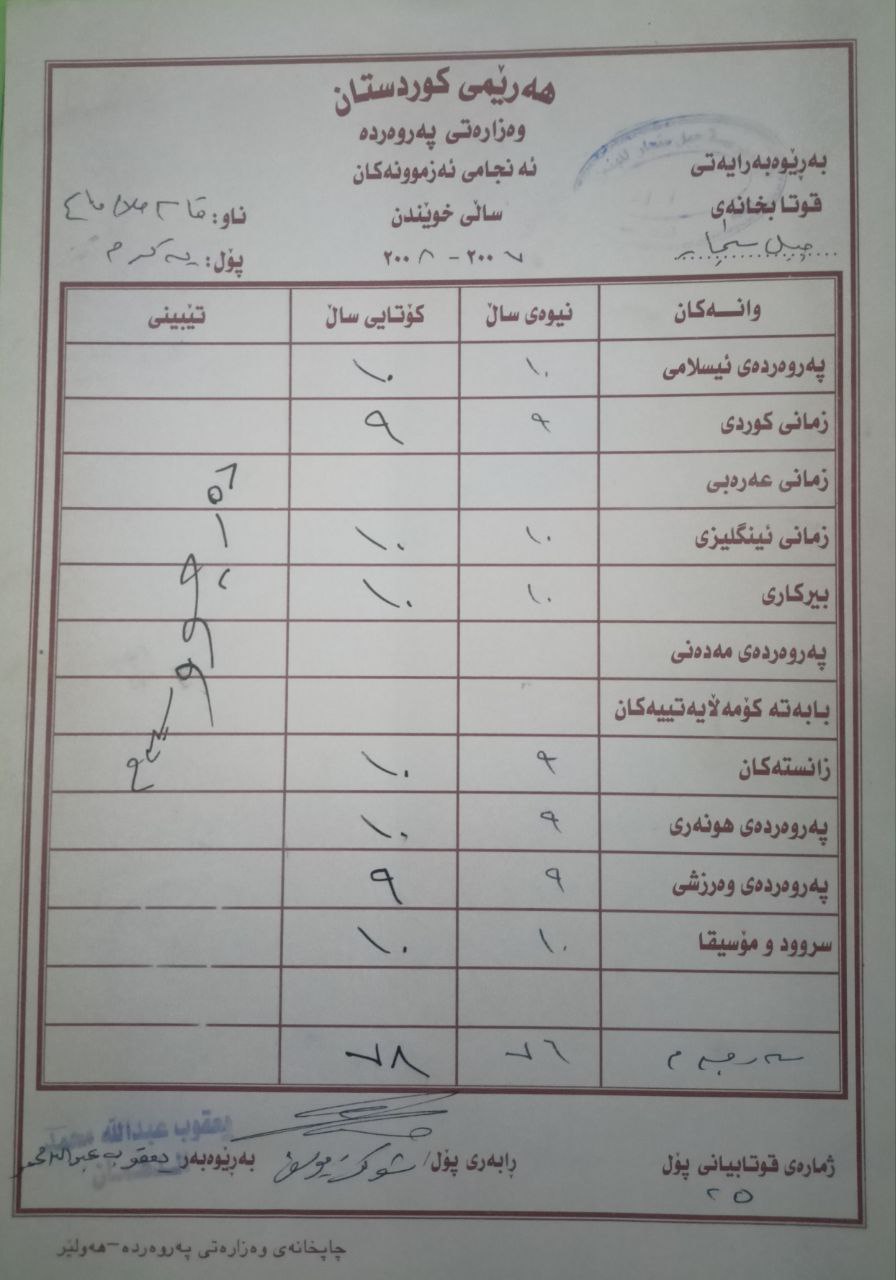 هەرێمی کوردستان
وەزارەتی پەروەردە
ئەنجامی ئەزموونەکان
ساڵی خوێندن
٢٠٠٧ - ٢٠٠٨
بەڕێوەبەرایەتی
قوتابخانەی
جبل سنجار
ناو:
پۆل: یەکەم
وانــەکان نیوەی ساڵ کۆتایی ساڵ تێبینی
پەروەردەی ئیسلامی ١٠ ١٠
زمانی کوردی ٩ ٩
زمانی عەرەبی
زمانی ئینگلیزی ١٠ ١٠
بیرکاری ١٠ ١٠
پەروەردەی مەدەنی
بابەتە کۆمەڵایەتییەکان
زانستەکان ٩ ١٠
پەروەردەی هونەری ٩ ١٠
پەروەردەی وەرزشی ٩ ٩
سروود و مۆسیقا ١٠ ١٠
سەرجەم ٧٦ ٧٨
ژمارەی قوتابیانی پۆل ڕابەری پۆل/ بەڕێوەبەر یعقوب عبدالله محمد
٢٥
یعقوب عبدالله محمد
چاپخانەی وەزارەتی پەروەردە-هەولێر